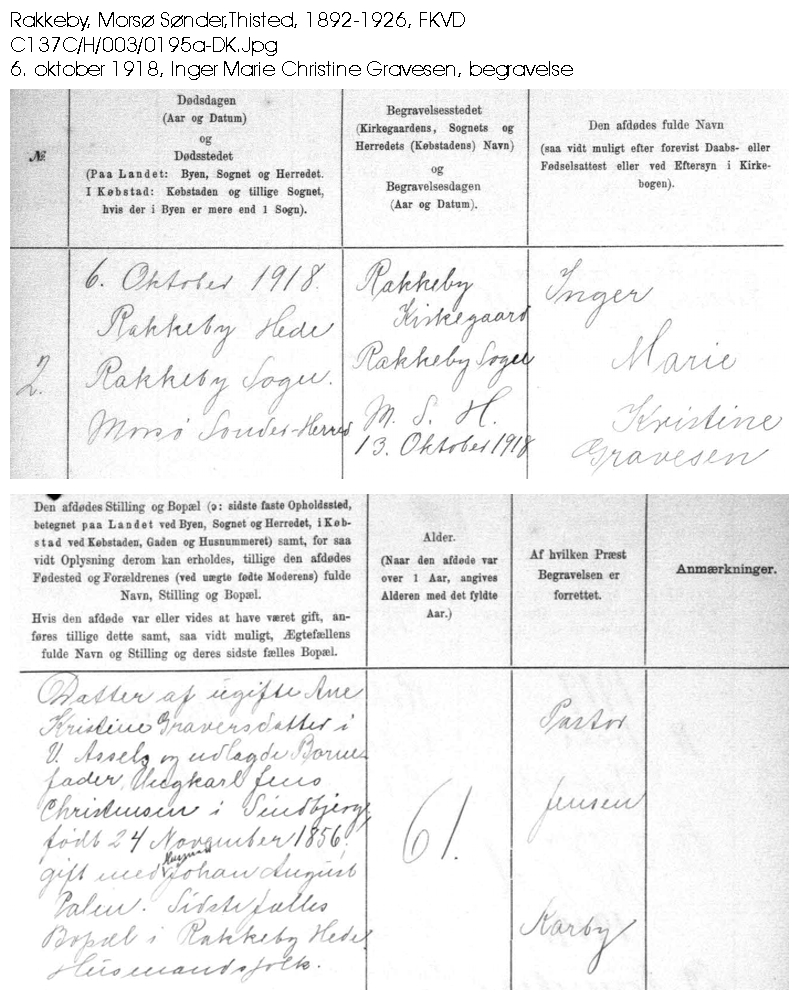 Rakkeby, Morsø Sønder,Thisted, 1892-1926, FKVD
C137C/H/003/0195a-DK.Jpg
6. oktober 1918, Inger Marie Christine Gravesen, begravelse
№
Dødsdagen
(Aar og Datum)
og
Dødsstedet
(Paa Landet: Byen, Sognet og Herredet.
I Købstad: Købstaden og tillige Sognet,
hvis der i Byen er mere end 1 Sogn).
Begravelsesstedet
(Kirkegaardens, Sognets og
Herredets (Købstadens) Navn)
og
Begravelsesdagen
(Aar og Datum).
Den afdødes fulde Navn
(saa vidt muligt efter forevist Daabs- eller
Fødselsattest eller ved Eftersyn i Kirke-
bogen).
2.
6. Oktober 1918.
Rakkeby Hede
Rakkeby Sogn.
Morsø Sønder-Herred
Rakkeby
Kirkegaard
Rakkeby Sogn
M. S. H.
13. Oktober 1918
Inger
Marie
Kristine
Gravesen
Den afdødes Stilling og Bopæl (ɔ: sidste faste Opholdssted,
betegnet paa Landet ved Byen, Sognet og Herredet, i Køb-
stad ved Købstaden, Gaden og Husnummeret) samt, for saa
vidt Oplysning derom kan erholdes, tillige den afdødes
Fødested og Forældrenes (ved uægte fødte Moderens) fulde
Navn, Stilling og Bopæl.
Hvis den afdøde var eller vides at have været gift, an-
føres tillige dette samt, saa vidt muligt, Ægtefællens
fulde Navn og Stilling og deres sidste fælles Bopæl.
Alder.
(Naar den afdøde var
over 1 Aar, angives
Alderen med det fyldte
Aar.)
Af hvilken Præst
Begravelsen er
forrettet.
Anmærkninger.
Datter af ugifte Ane
Kristine Graversdatter i
V. Assels og udlagde Barne-
fader, Ungkarl Jens
Christensen i Sindbjerg,
født 24 November 1856.
gift med Husmand Johan August
Palm. Sidste fælles
Bopæl i Rakkeby Hede
Husmandsfolk.
61.
Pastor
Jensen
Karby